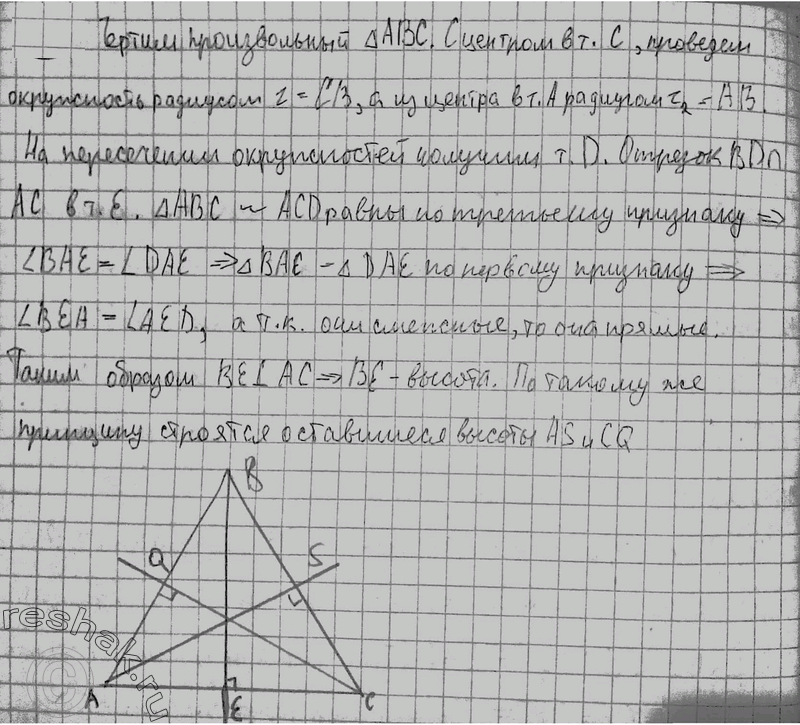 Чертим произвольный △ABC. С центром в т. C, проведем
окружность радиусом r = CB, а из центра в т. A радиусом r₂ = AB.
На пересечении окружностей получим т. D. Отрезок BD ∩
AC в т. E. △ABC и ACD равны по третьему признаку ⇒
∠BAE = ∠DAE ⇒ △BAE = △DAE по первому признаку ⇒
∠BEA = ∠AED, а т.к. они смежные, то она прямые.
Таким образом BE ⊥ AC ⇒ BE - высота. По такому же
принципу строятся оставшиеся высоты AS и CQ
B
Q
S
A
E
C
reshak.ru